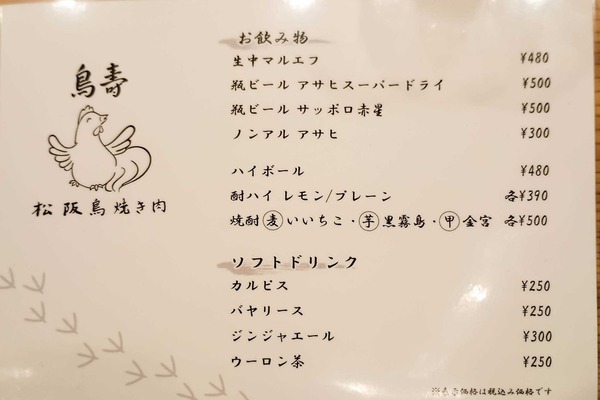 鳥壽
松阪鳥焼き肉
お飲み物
生中マルエフ ¥480
瓶ビール アサヒスーパードライ ¥500
瓶ビール サッポロ赤星 ¥500
ノンアル アサヒ ¥300
ハイボール ¥480
酎ハイ レモン/プレーン 各¥390
焼酎 麦 いいちこ・芋 黒霧島・甲 金宮 各¥500
ソフトドリンク
カルピス ¥250
バヤリース ¥250
ジンジャエール ¥300
ウーロン茶 ¥250
※表示価格は税込み価格です